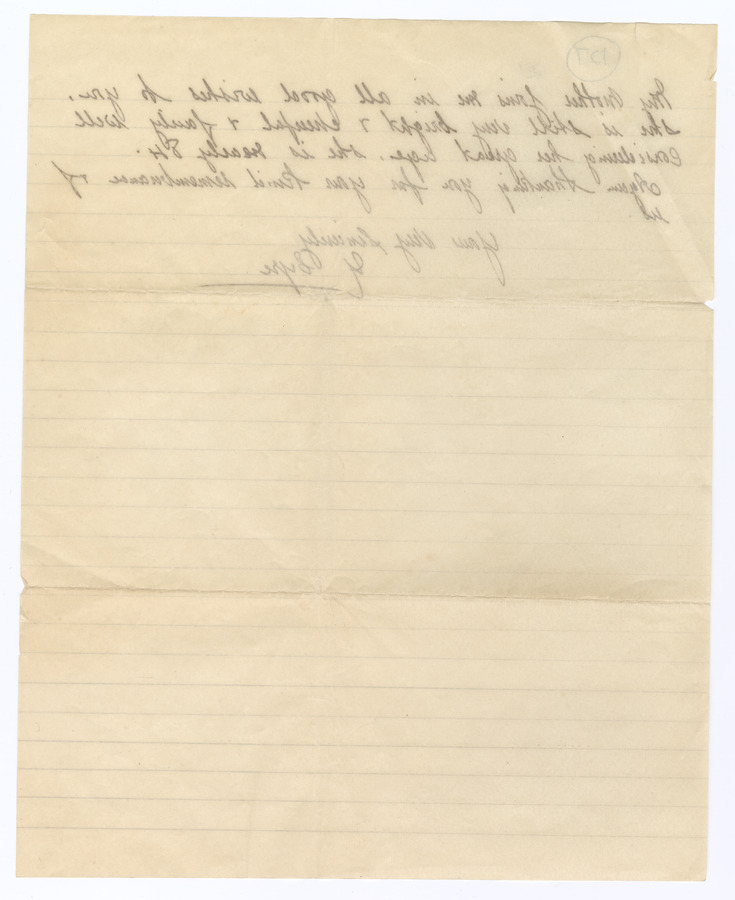 My Mother joins me in all good wishes to you.
She is still very bright & cheerful & fairly well
considering her great age. She is nearly 84.
Again thanking you for your kind remembrance of
us
Your very sincerely
Pope